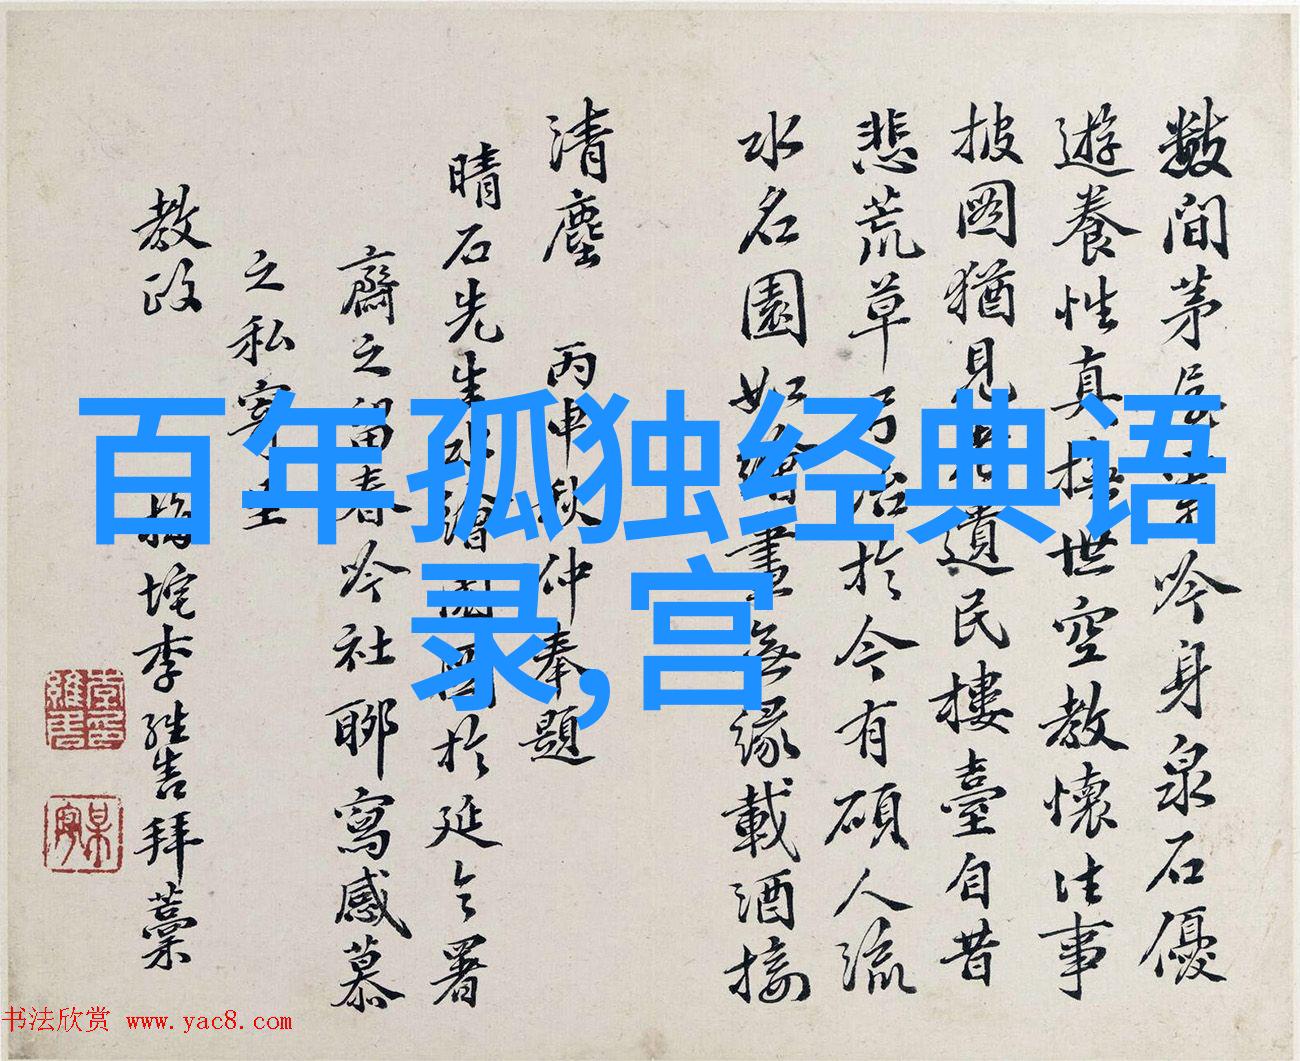 數間茅屋吟身泉石優
遊養性真世空教懷往事
披圖猶見遺民樓臺自昔
悲荒草弓冶於今有碩人流
水名園如繪畫無緣載酒接
清塵 丙申秋仲奉題
晴石先生水繪園圖於延令署
齋之留春吟社聊寫感慕
之私寄呈
教政 梅垞李拜藁
百年孤独经典语
录,宫
书法欣赏 www.yac8.com